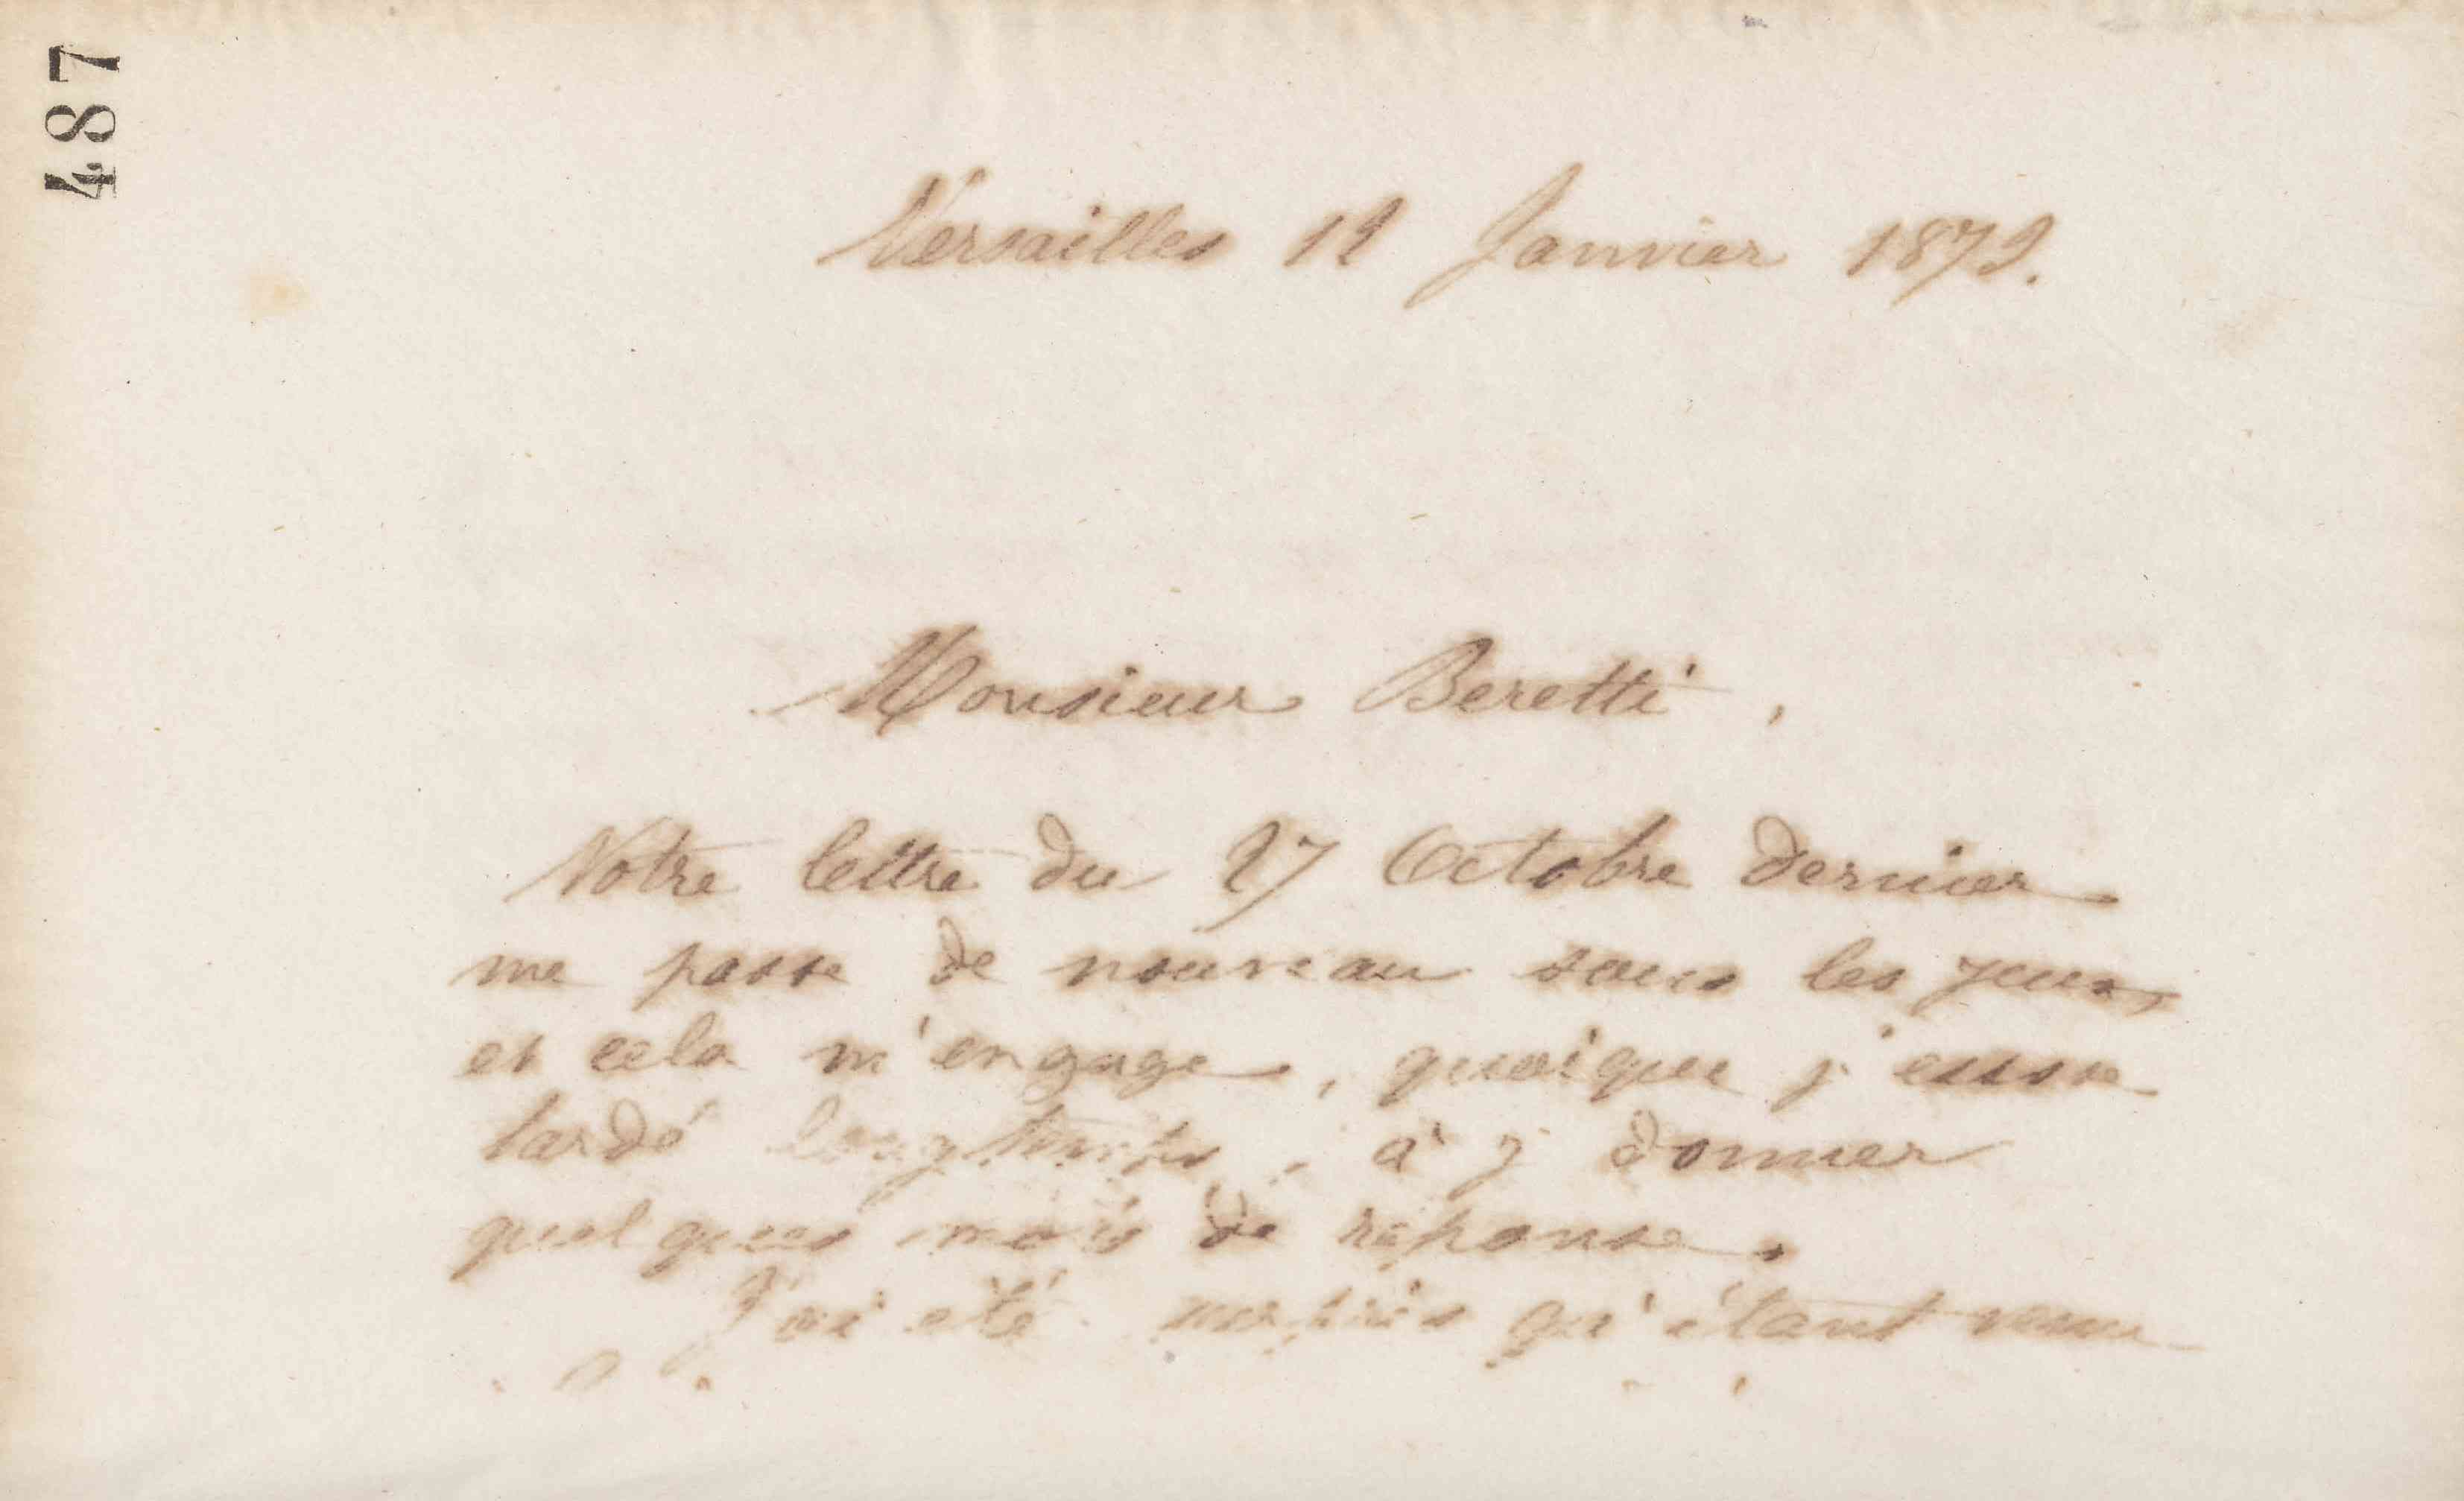 487
Versailles 19 Janvier 1879.
Monsieur Beretti,
Votre lettre du 27 Octobre dernier
me passe de nouveau sous les yeux,
et cela m'engage, quoique j'eusse
tardé longtemps, à y donner
quelques mots de réponse.
J'ai été surpris qu'étant venu